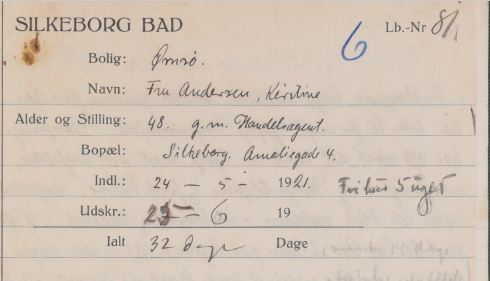 SILKEBORG BAD 6 Lb.-Nr 81
Bolig: Ørnsø.
Navn: Fru Andersen, Kirstine
Alder og Stilling: 48. g.m. Handelsagent.
Bopæl: Silkeborg. Amaliegade 4.
Indl.: 24 - 5 - 1921. Frihus 5 uger
Udskr.: 25 - 6 19
Ialt 32 Dage Dage
14 dage